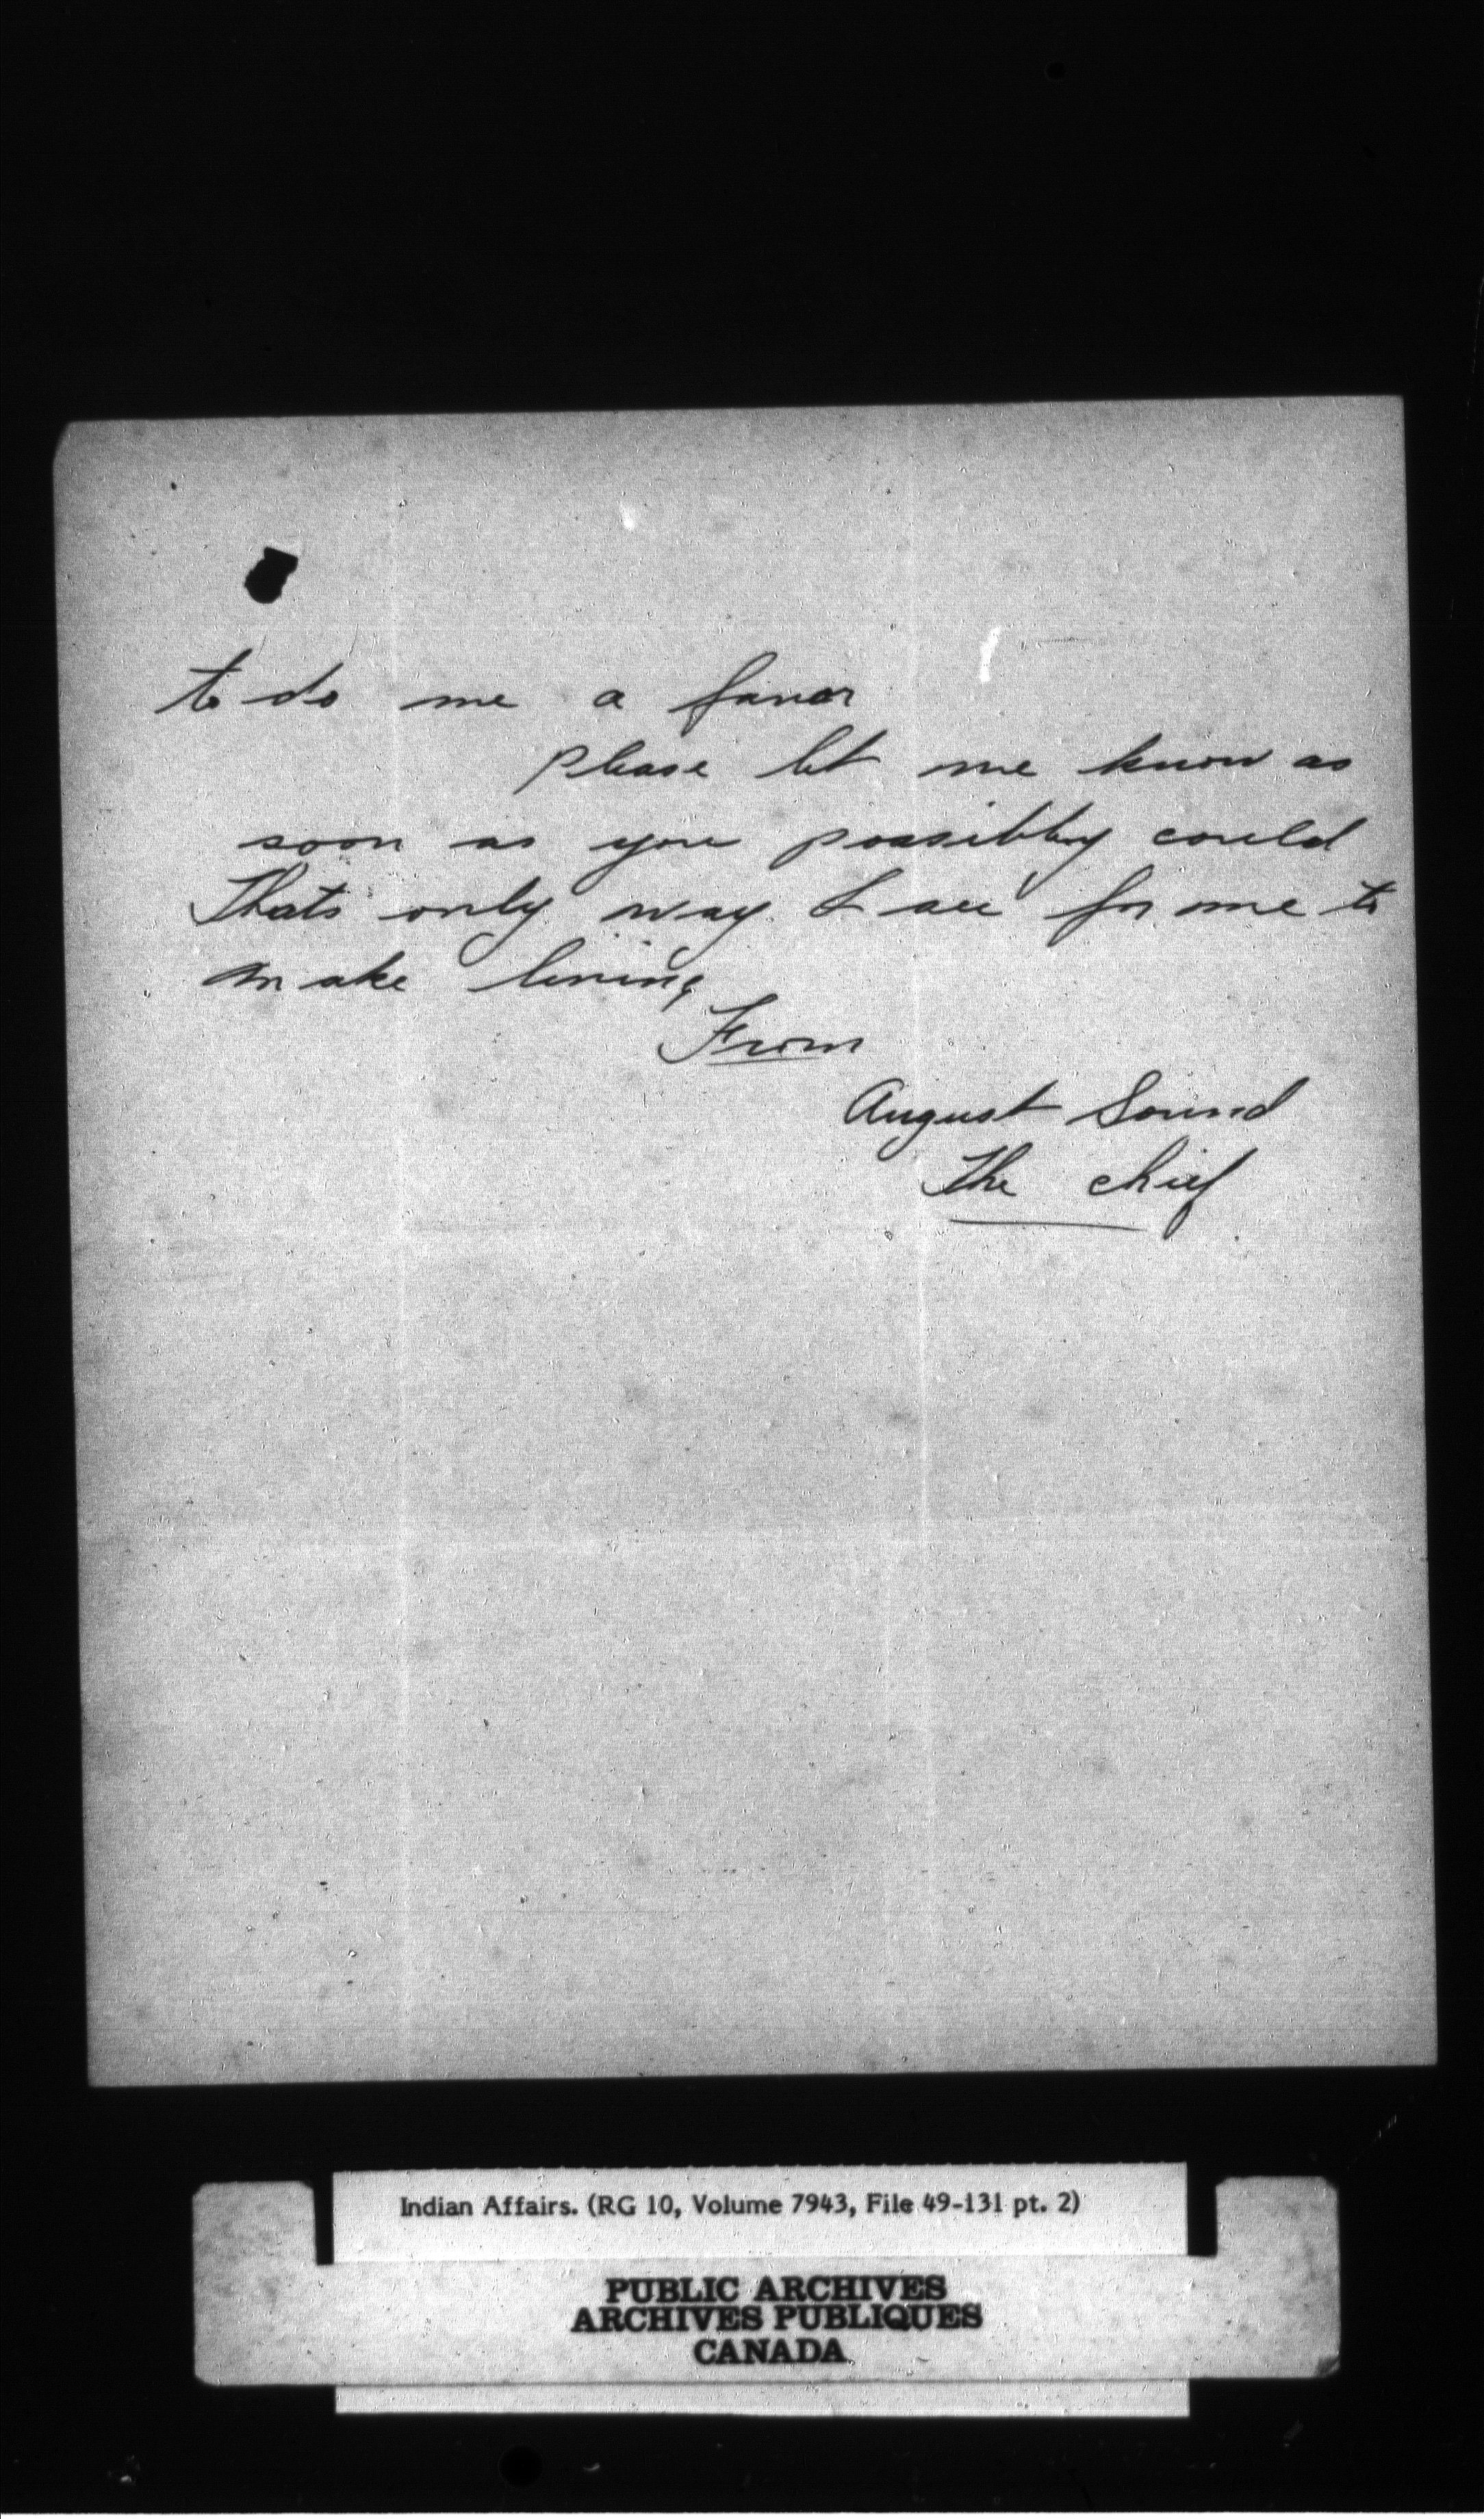 to do me a favor
Please let me know as
soon as you possibbly could
Thats only way I see for me to
make living
From
August Sound
The chief
Indian Affairs. (RG 10, Volume 7943, File 49-131 pt. 2)
PUBLIC ARCHIVES
ARCHIVES PUBLIQUES
CANADA